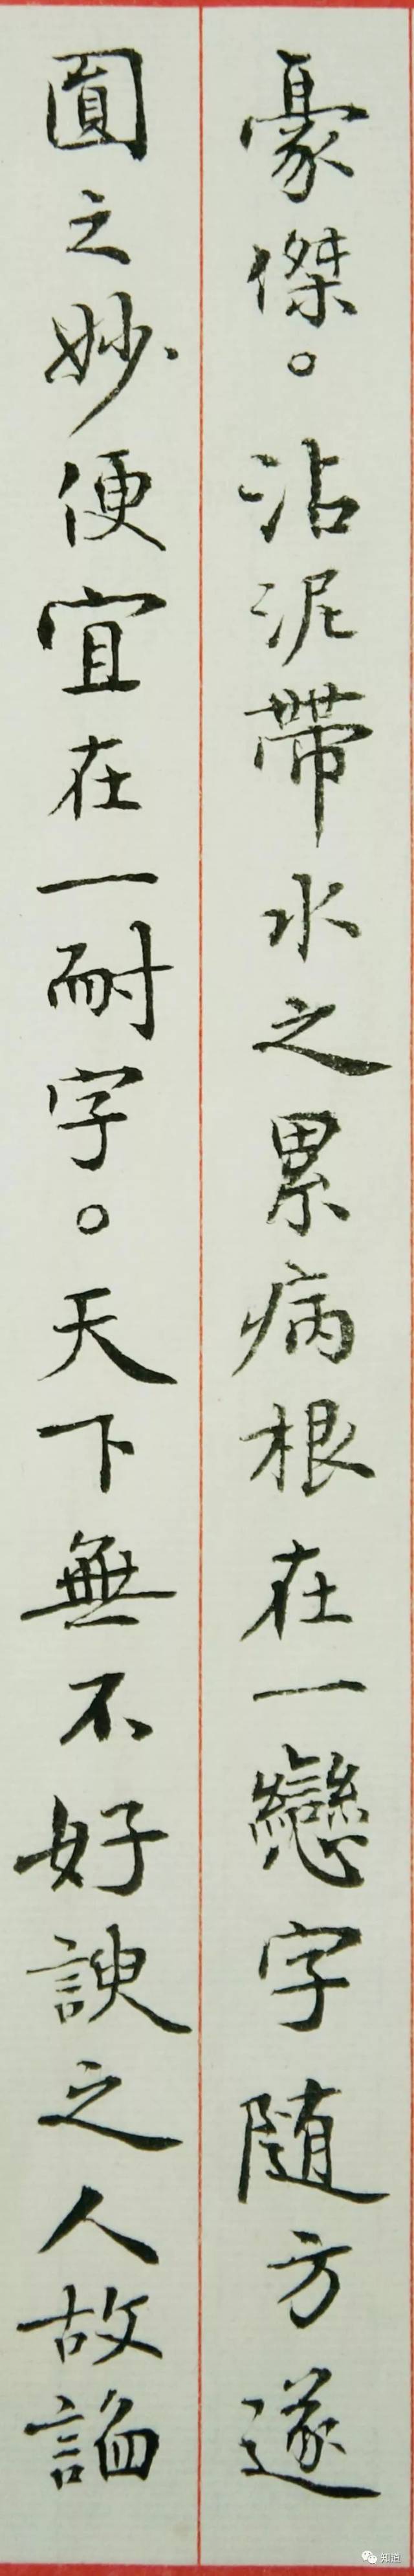 豪傑。沾泥帶水之累病根在一戀字随方遂
圎之妙便宜在一耐字。天下無不好諛之人故謟
知道